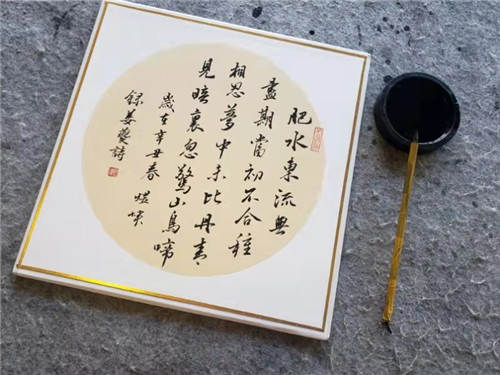 肥水東流無
盡期當初不合種
相思夢中未比丹青
見暗裏忽驚山鳥啼
歲在辛丑春煜
錄姜夔詩